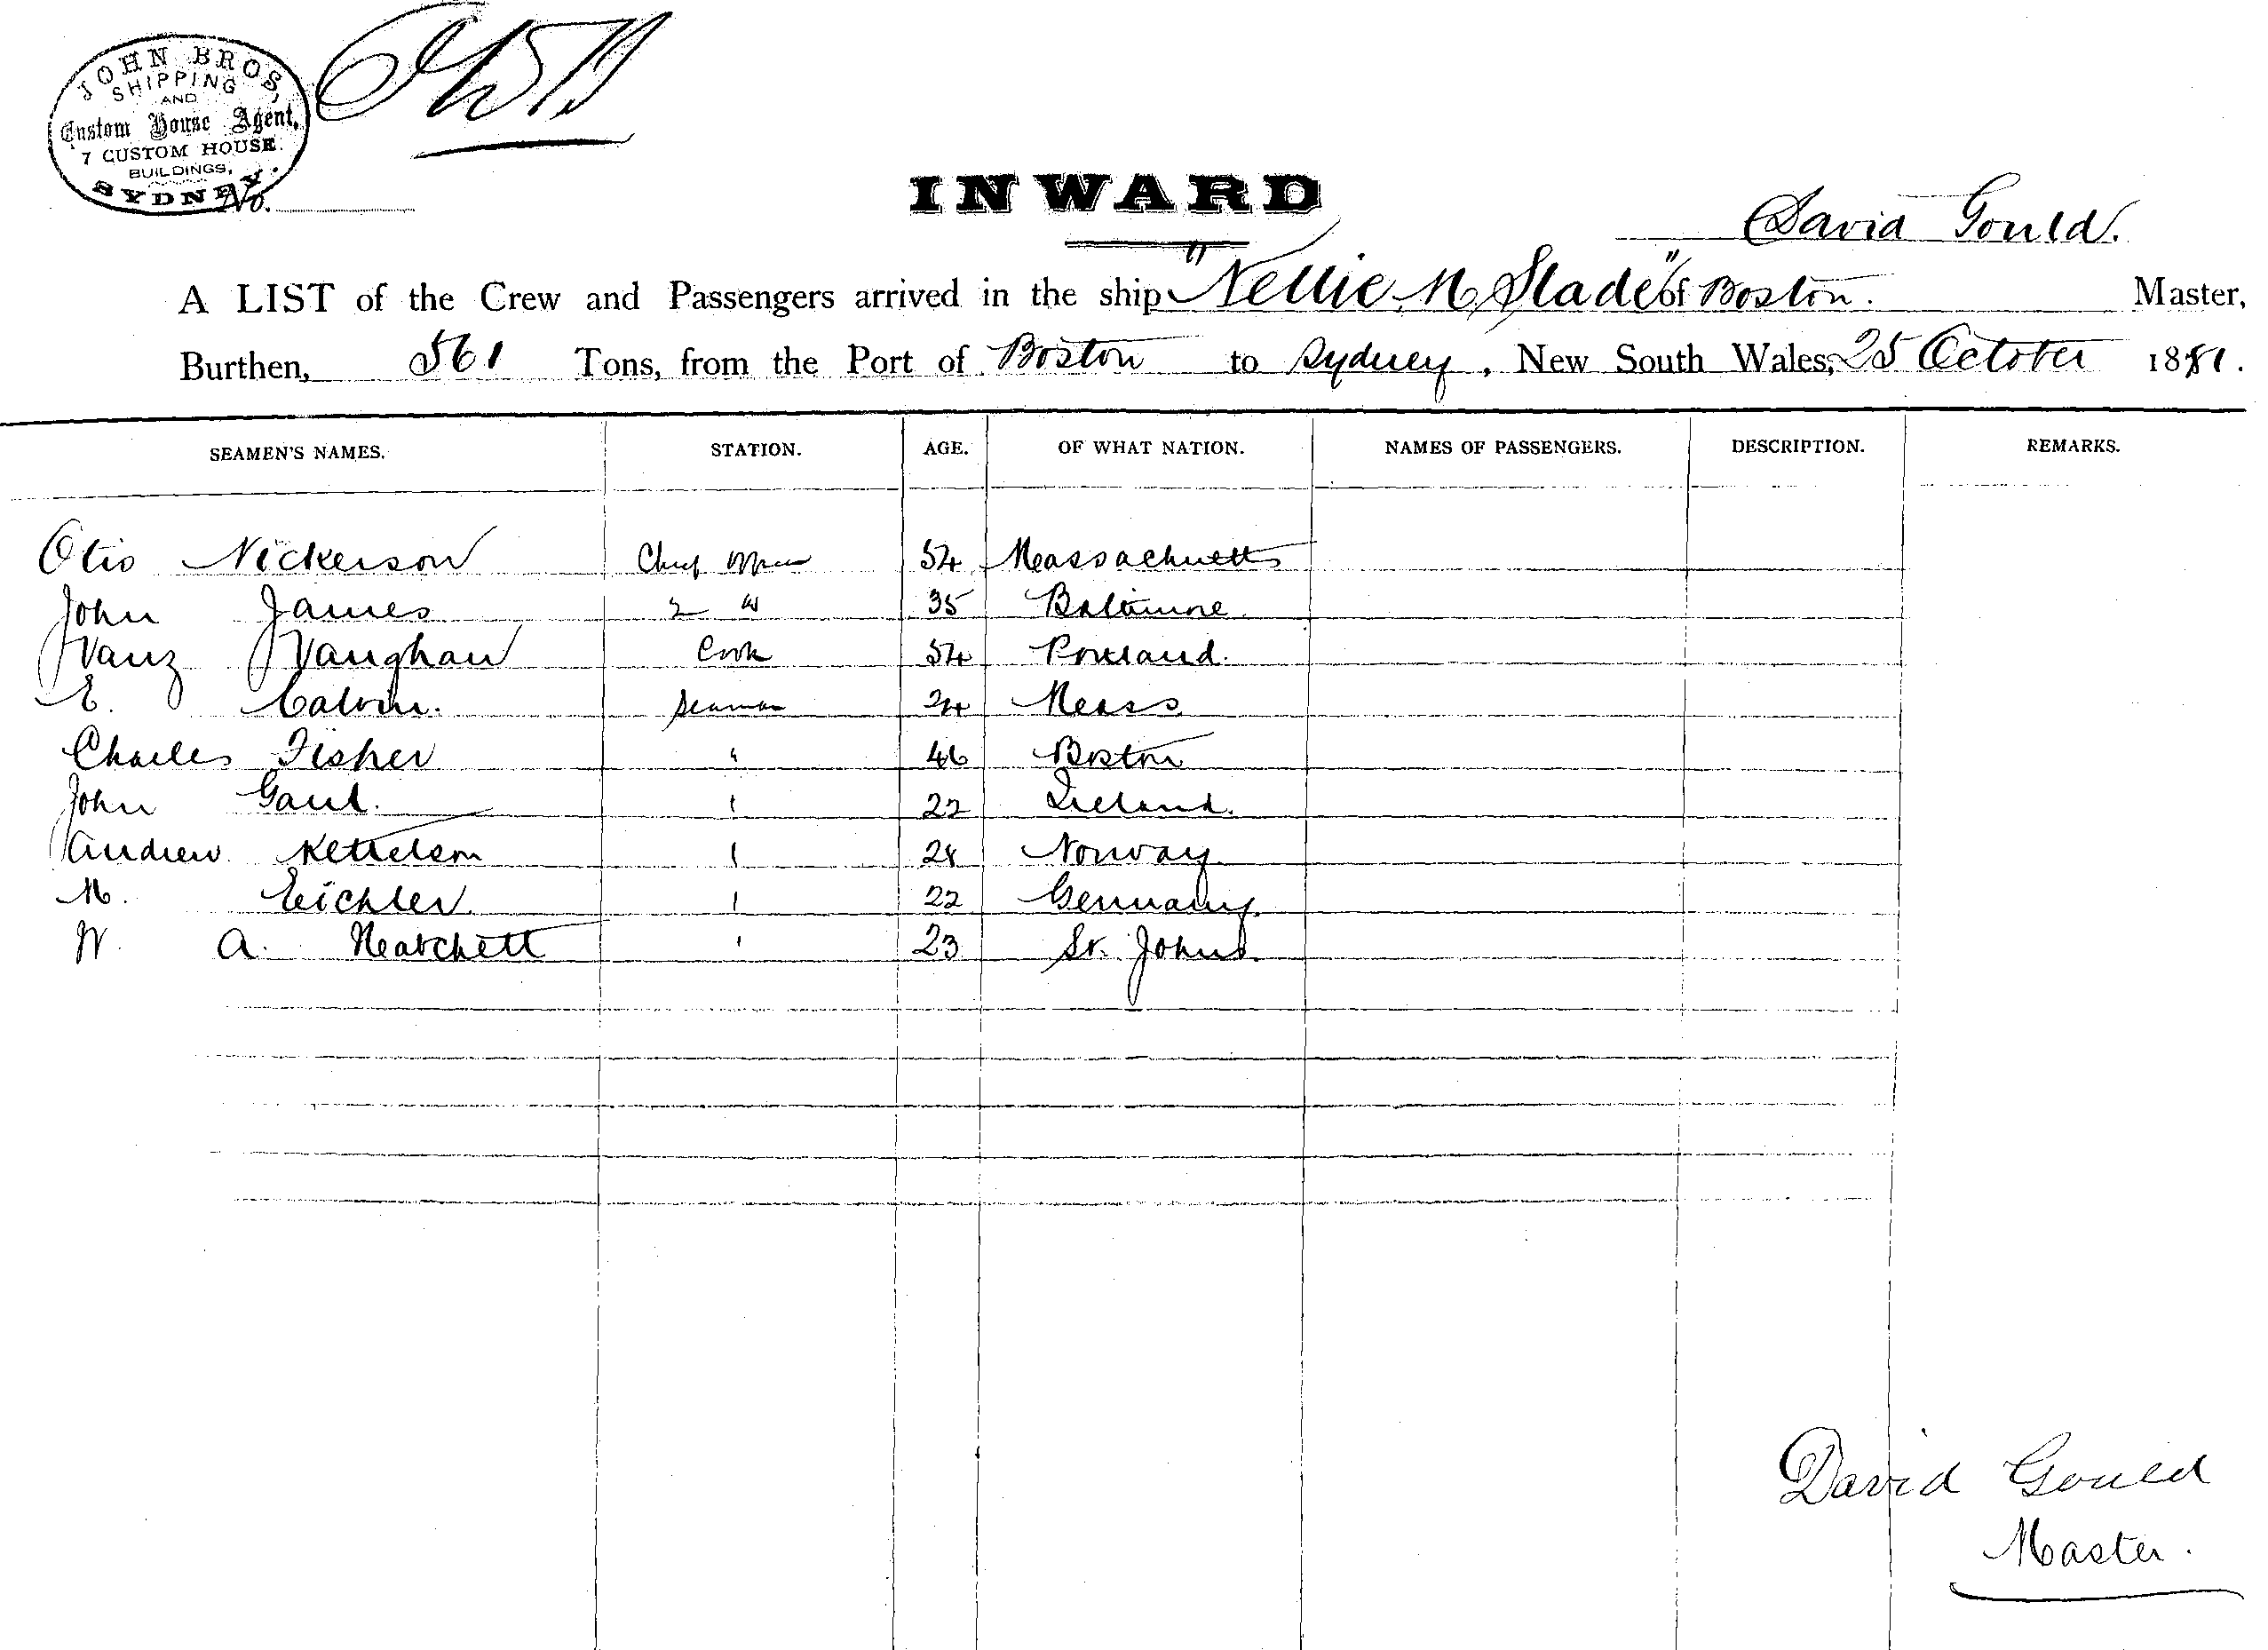 JOHN BROS,
SHIPPING
AND
Custom House Agent,
7 CUSTOM HOUSE
BUILDINGS,
SYDNEY.
No.
INWARD
David Gould.
A LIST of the Crew and Passengers arrived in the ship "Nellie M. Slade" of Boston. Master,
Burthen, 561 Tons, from the Port of Boston to Sydney, New South Wales, 25 October 1881.
SEAMEN'S NAMES. STATION. AGE. OF WHAT NATION. NAMES OF PASSENGERS. DESCRIPTION. REMARKS.
Otis Nickerson Chief Officer 54 Massachuetts
John James 2 " 35 Baltimore
Vanz Vaughan Cook 54 Portland.
E. Calvin. Seaman 24 Mass
Charles Fisher " 46 Boston
John Gaul. " 22 Ireland.
Andrew Kettelson " 28 Norway
M. Eichler " 22 Germany
W. A. " 23 St. Johns
David Gould
Master.